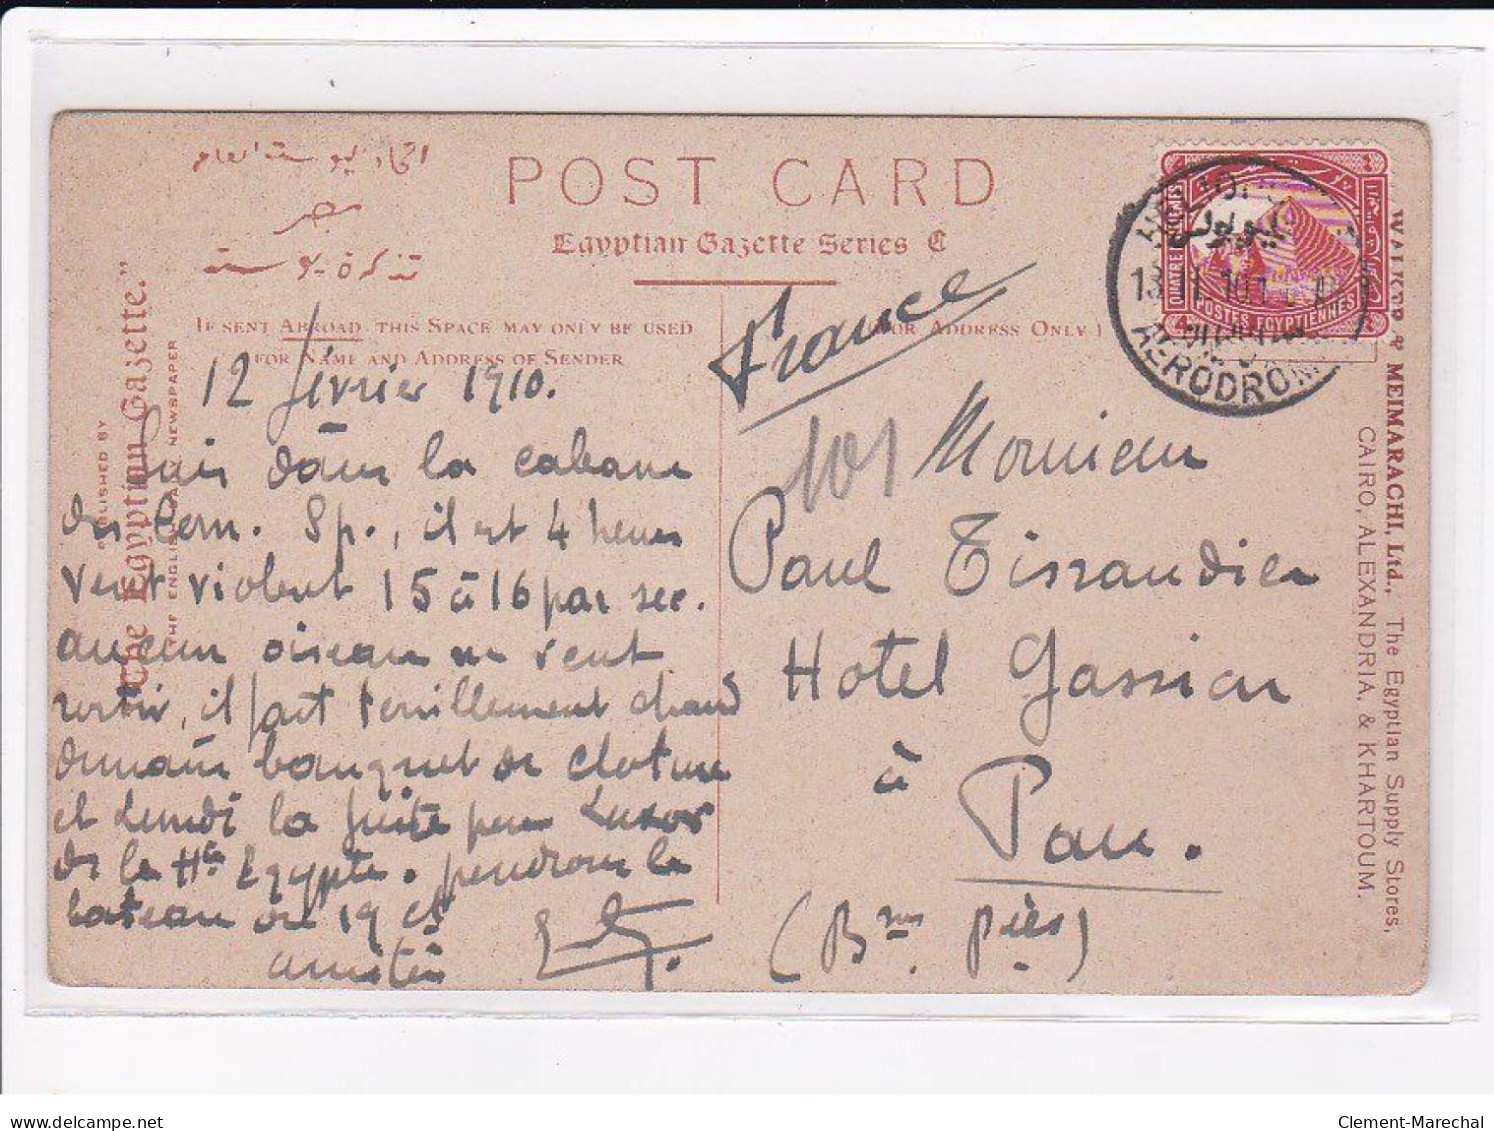 اتحاد بوستة العام
مصر
تذكرة بوستة
POST CARD
Egyptian Gazette Series C
IF SENT ABROAD, THIS SPACE MAY ONLY BE USED
FOR NAME AND ADDRESS OF SENDER
(FOR ADDRESS ONLY)
PUBLISHED BY
"The Egyptian Gazette."
THE ENGLISH DAILY NEWSPAPER
12 février 1910.
Suis dans la cabane
des Com. Sp., il est 4 heures
vent violent 15 à 16 par sec.
aucun oiseau ne veut
sortir, il fait terriblement chaud
demain banquet de cloture
et Lundi la fuite pour Luxor
de la Hte Egypte. prendrons le
bateau du 19 ct
amitiés
France
101
Monsieur
Paul Tissandier
Hotel Gassion
à
Pau.
(Bses Pées)
QUATRE
POSTES EGYPTIENNES
HELIOPOLIS
13 II 10
AERODROME
WALKER & MEIMARACHI, Ltd., The Egyptian Supply Stores,
CAIRO, ALEXANDRIA, & KHARTOUM.
www.delcampe.net
Clement-Marechal